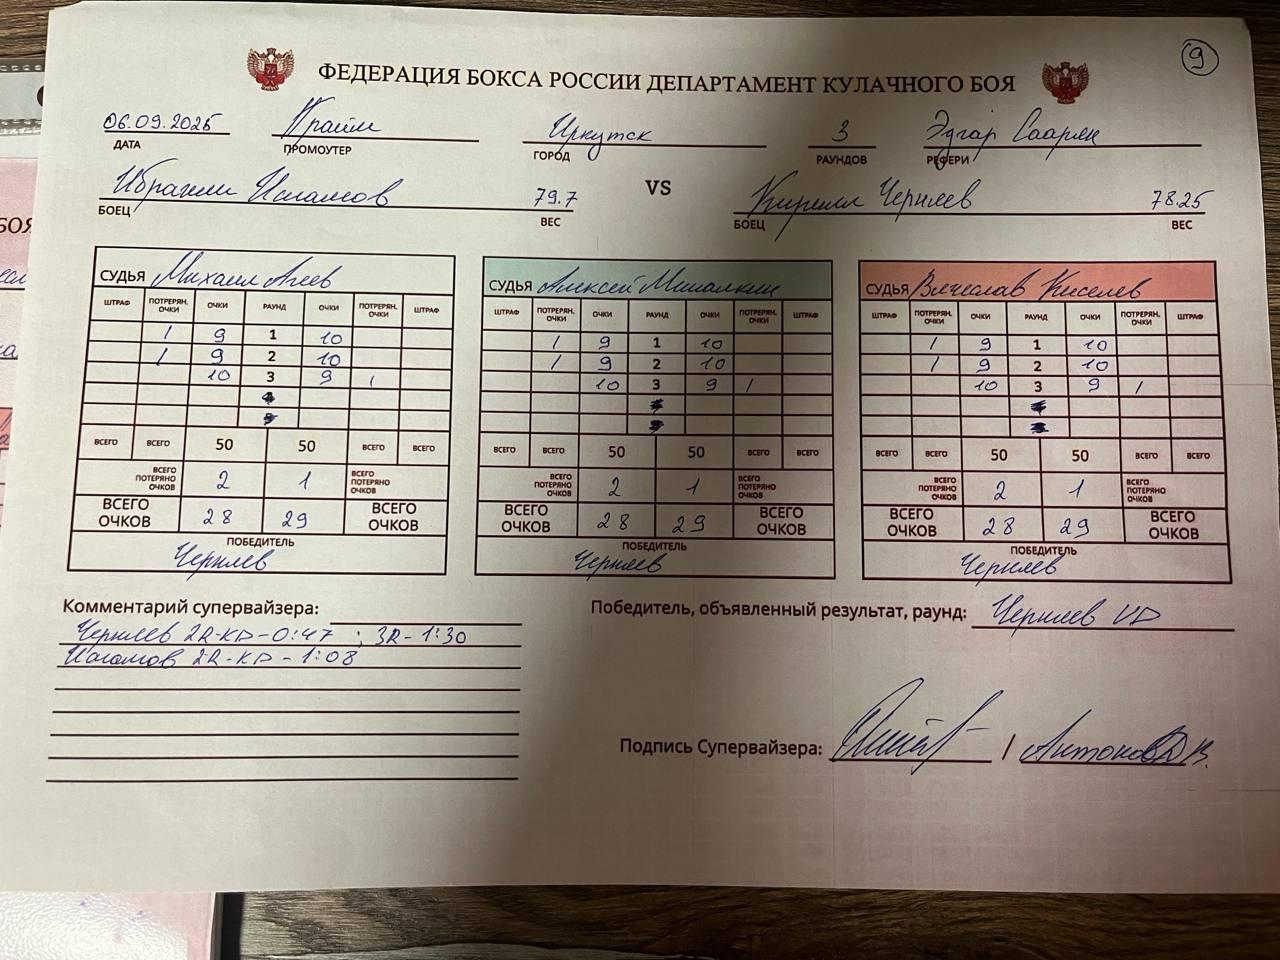 9
ФЕДЕРАЦИЯ БОКСА РОССИИ ДЕПАРТАМЕНТ КУЛАЧНОГО БОЯ
06.09.2025 Прайм Иркутск 3 Эдгар Саарян
ДАТА ПРОМОУТЕР ГОРОД РАУНДОВ РЕФЕРИ
Ибрагим Исламов 79.7 VS Кирилл Черняев 78.25
БОЕЦ ВЕС БОЕЦ ВЕС
СУДЬЯ Михаил Агеев
ШТРАФ ПОТЕРЯН. ОЧКИ ОЧКИ РАУНД ОЧКИ ПОТЕРЯН. ОЧКИ ШТРАФ
1 9 1 10
1 9 2 10
10 3 9 1
4
5
ВСЕГО ВСЕГО 50 50 ВСЕГО ВСЕГО
ВСЕГО ПОТЕРЯНО ОЧКОВ 2 1 ВСЕГО ПОТЕРЯНО ОЧКОВ
ВСЕГО ОЧКОВ 28 29 ВСЕГО ОЧКОВ
ПОБЕДИТЕЛЬ
Черняев
СУДЬЯ Алексей
ШТРАФ ПОТЕРЯН. ОЧКИ ОЧКИ РАУНД ОЧКИ ПОТЕРЯН. ОЧКИ ШТРАФ
1 9 1 10
1 9 2 10
10 3 9 1
ВСЕГО ВСЕГО 50 50 ВСЕГО ВСЕГО
ВСЕГО ПОТЕРЯНО ОЧКОВ 2 1 ВСЕГО ПОТЕРЯНО ОЧКОВ
ВСЕГО ОЧКОВ 28 29 ВСЕГО ОЧКОВ
ПОБЕДИТЕЛЬ
Черняев
СУДЬЯ Вячеслав Киселев
ШТРАФ ПОТЕРЯН. ОЧКИ ОЧКИ РАУНД ОЧКИ ПОТЕРЯН. ОЧКИ ШТРАФ
1 9 1 10
1 9 2 10
10 3 9 1
ВСЕГО ВСЕГО 50 50 ВСЕГО ВСЕГО
ВСЕГО ПОТЕРЯНО ОЧКОВ 2 1 ВСЕГО ПОТЕРЯНО ОЧКОВ
ВСЕГО ОЧКОВ 28 29 ВСЕГО ОЧКОВ
ПОБЕДИТЕЛЬ
Черняев
Комментарий супервайзера:
Черняев 2R-KD-0:47 ; 3R-1:30
Исламов 2R-KD-1:08
Победитель, объявленный результат, раунд: Черняев UD
Подпись Супервайзера: / Антонов